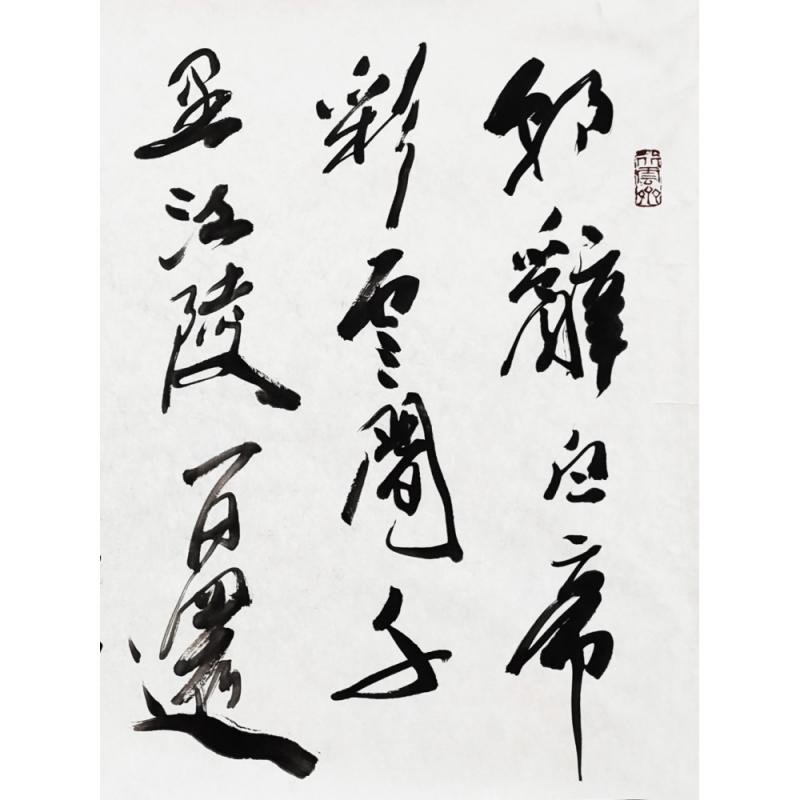 朝辭白帝
彩雲間千
里江陵一日還